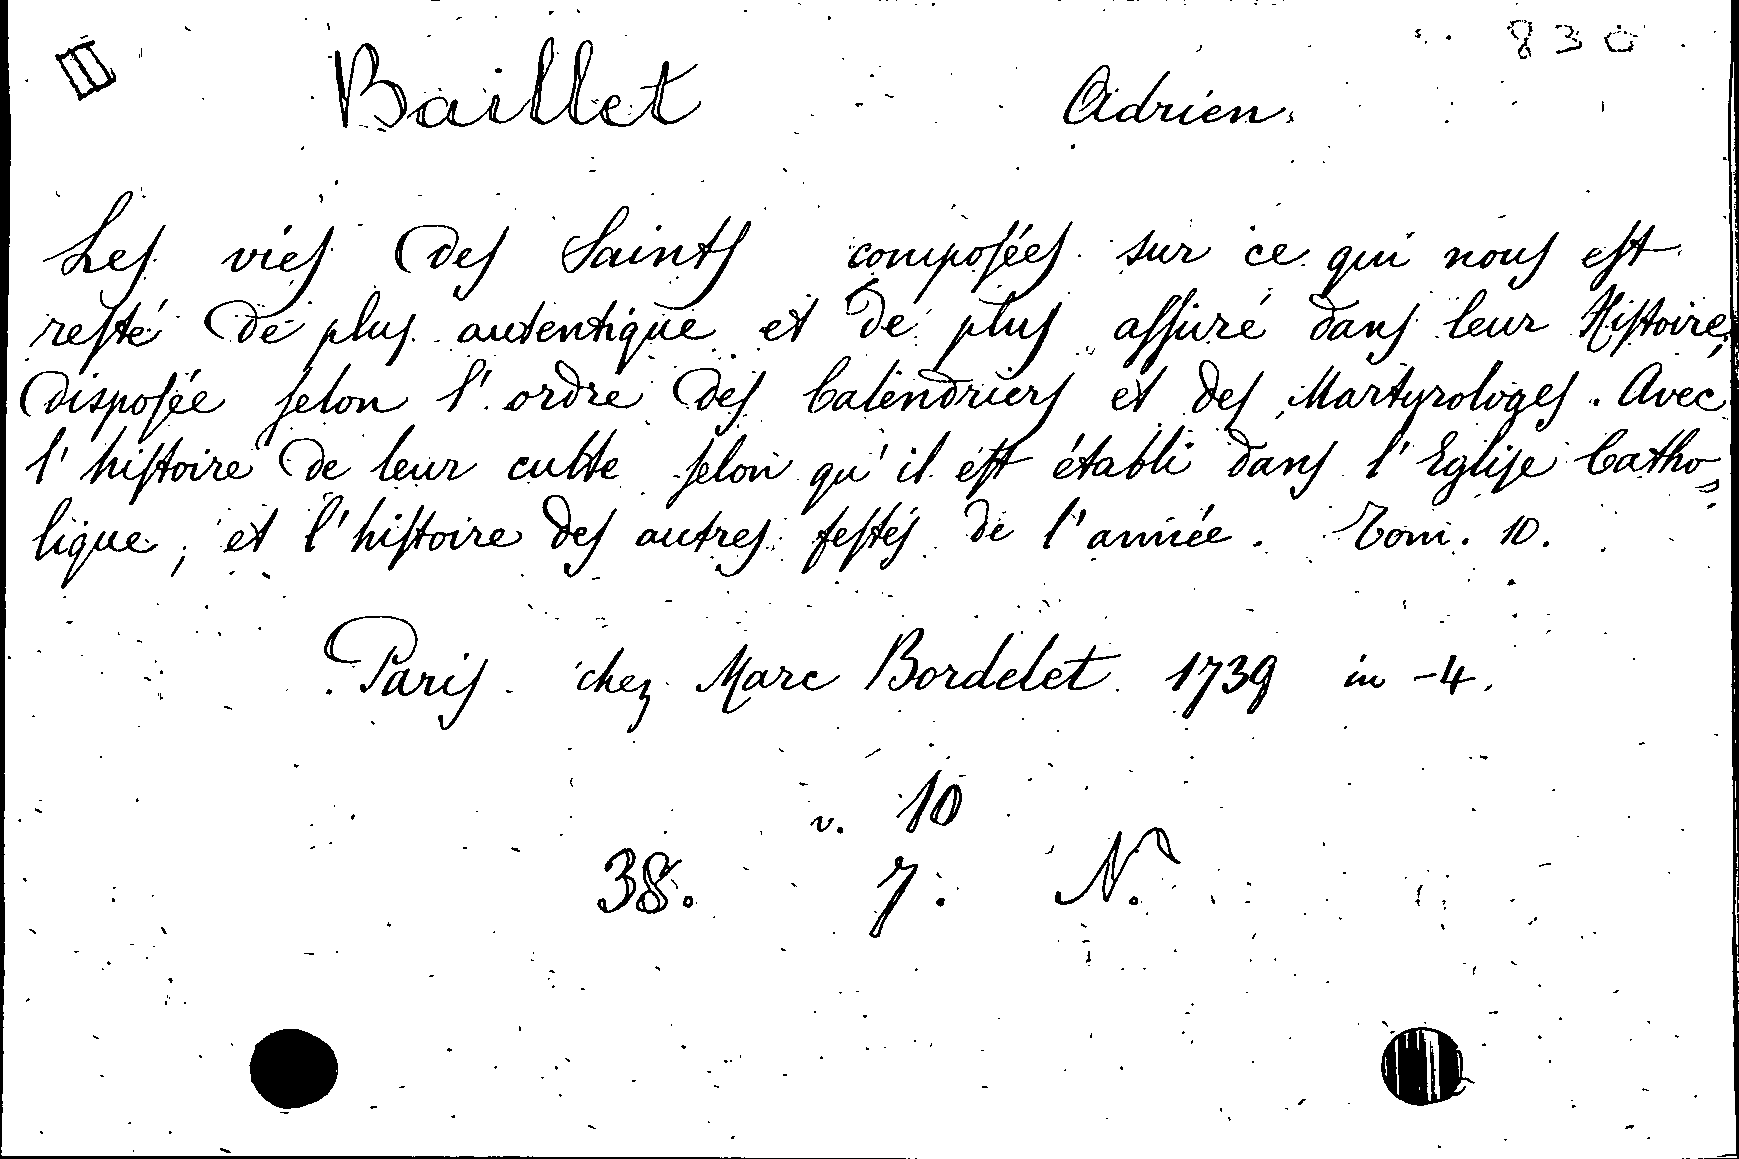 III Baillet Adrien. 830
Les vies des Saints composées sur ce qui nous est
resté de plus autentique et de plus assuré dans leur Histoire,
disposée selon l'ordre des Calendriers et des Martyrologes. Avec
l'histoire de leur culte selon qu'il est établi dans l'Eglise Catho=
lique, et l'histoire des autres festes de l'année. Tom. 10.
Paris chez Marc Bordelet 1739 in -4.
v. 10
38. 7. N.